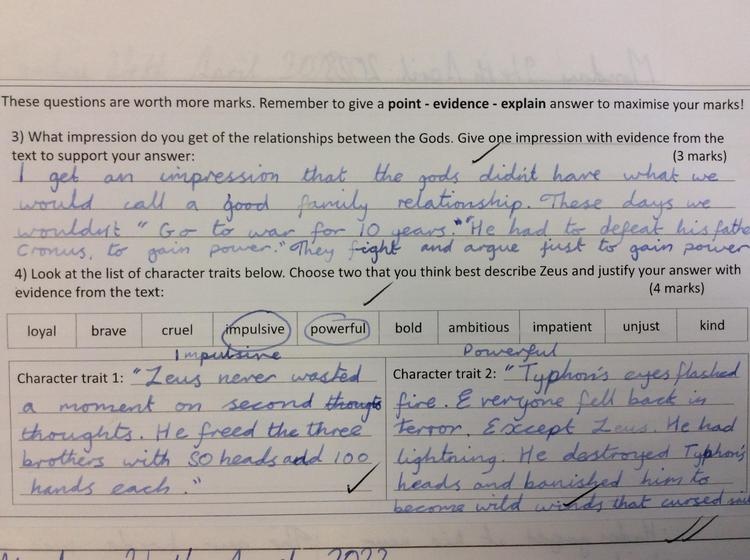 These questions are worth more marks. Remember to give a point - evidence - explain answer to maximise your marks!
3) What impression do you get of the relationships between the Gods. Give one impression with evidence from the
text to support your answer: (3 marks)
I get an impression that the gods didn't have what we
would call a good family relationship. These days we
wouldn't "Go to war for 10 years." "He had to defeat his fathe
Cronus, to gain power." They fight and argue just to gain power
4) Look at the list of character traits below. Choose two that you think best describe Zeus and justify your answer with
evidence from the text: (4 marks)
loyal brave cruel impulsive powerful bold ambitious impatient unjust kind
Impulsive
Character trait 1: "Zeus never wasted
a moment on second thougts
thoughts. He freed the three
brothers with 50 heads and 100
hands each."
Powerful
Character trait 2: "Typhon's eyes flashed
fire. Everyone fell back in
terror. Except Zeus. He had
lightning. He destroyed Typhon's
heads and banished him to
become wild winds that cursed